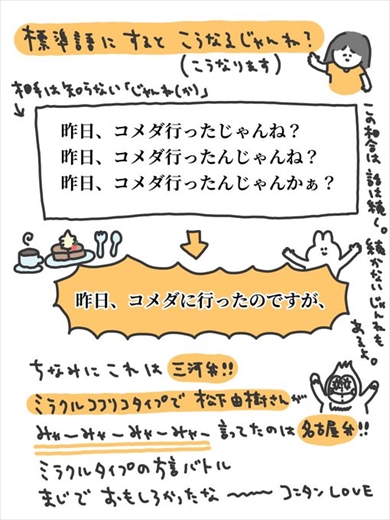 標準語にするとこうなるじゃんね？
（こうなります）
相手は知らない「じゃんね（か）」
昨日、コメダ行ったじゃんね？
昨日、コメダ行ったんじゃんね？
昨日、コメダ行ったんじゃんかぁ？
この場合は話は続く。続かないじゃんねもあるよ。
昨日、コメダに行ったのですが、
ちなみにこれは三河弁!!
ミラクルココリコタイプで松下由樹さんが
みゃーみゃーみゃーみゃー言ってたのは名古屋弁!!
ミラクルタイプの方言バトル
まじでおもしろかったな〜〜〜コンタンLOVE